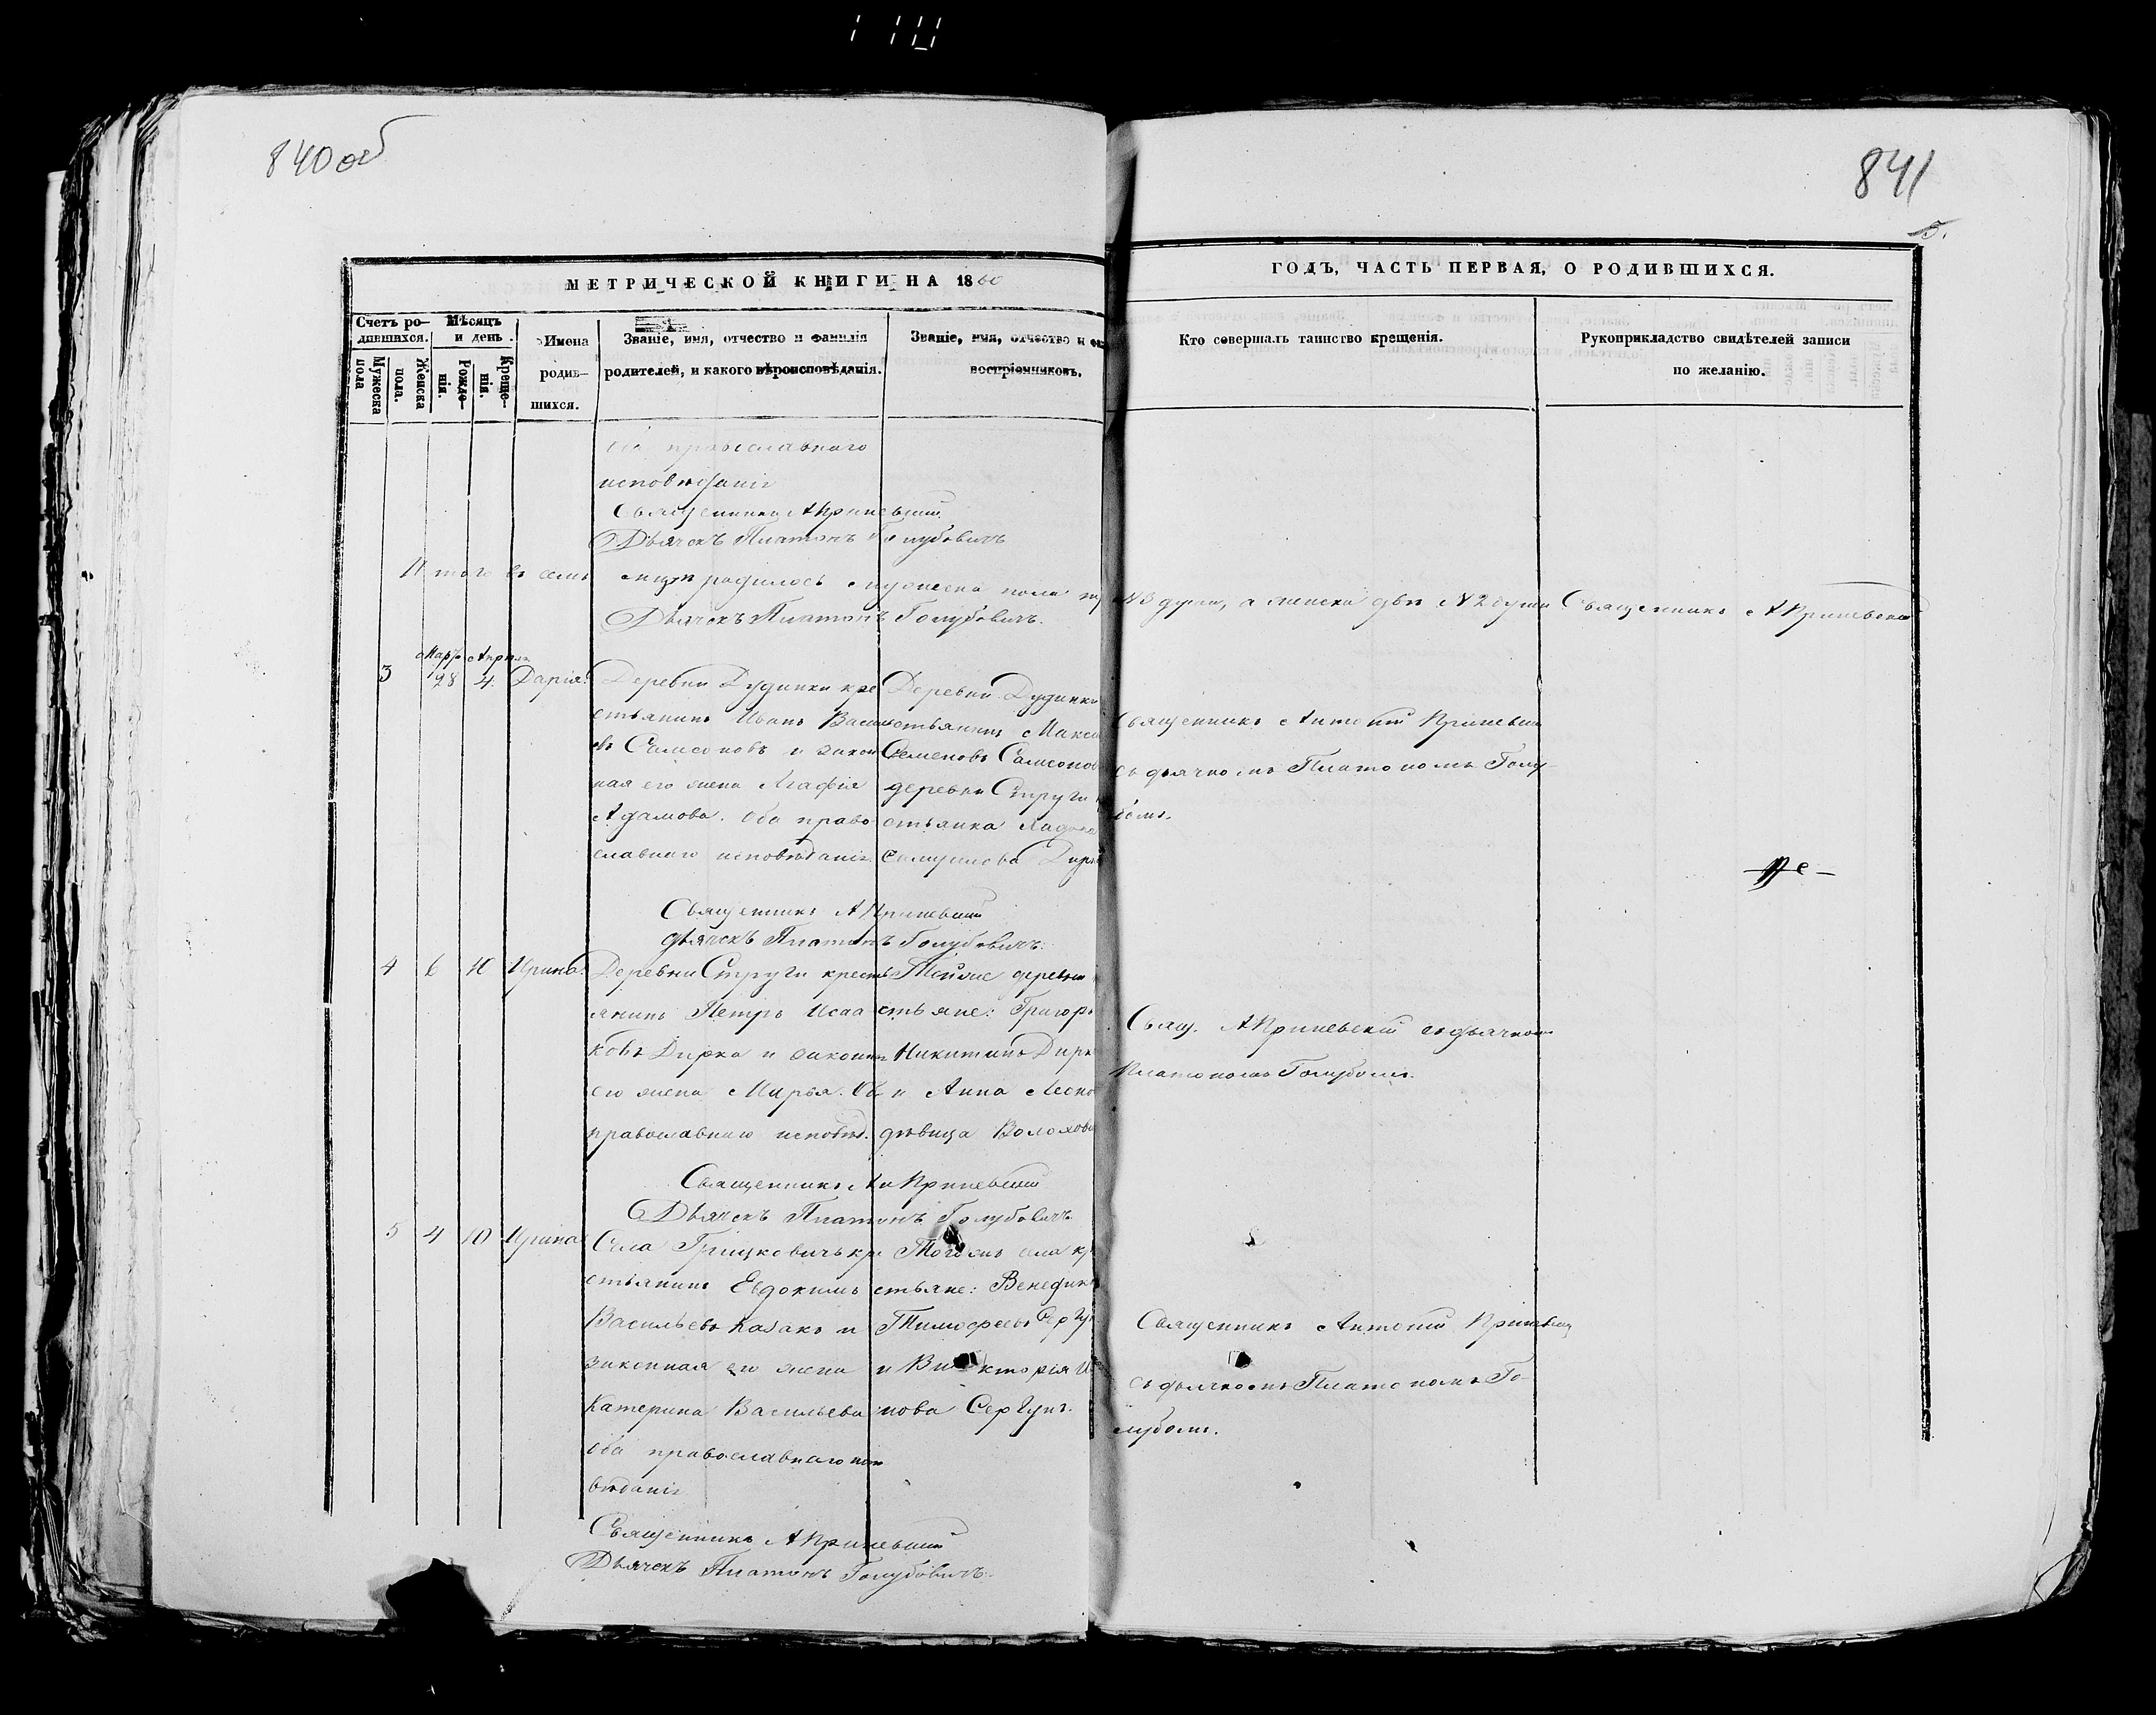 840 об
841
5.
МЕТРИЧЕСКОЙ КНИГИ НА 1860
ГОДЪ, ЧАСТЬ ПЕРВАЯ, О РОДИВШИХСЯ.
Счетъ ро-
дившихся.
Мужеска
пола
Женска
пола.
Мѣсяцъ
и день.
Рожде-
нія.
Креще-
нія.
Имена
родив-
шихся.
Званіе, имя, отчество и фамилія
родителей, и какого вѣроисповѣданія.
Званіе, имя, отчество и
воспріемниковъ.
Кто совершалъ таинство крещенія.
Рукоприкладство свидѣтелей записи
по желанію.
оба православнаго
исповѣданія
Священникъ А
Дьячекъ Платонъ Голубовичъ
Итого въ семъ родилось мужеска пола 3 души, а женска двѣ 2 души Священникъ А
Дьячекъ Платонъ Голубовичъ.
Мар. Апрѣля
3 28 4. Дарія.
Деревни Дудинки кре
стьянинъ Иванъ
въ Самсоновъ и закон
ная его жена Агафія
Адамова. Оба право
славнаго исповѣданія.
Деревни Дудинки
стьянинъ
Семеновъ Самсонов
деревни Струги
стьянка
Священникъ Антоній
съ дьячкомъ Платономъ Голу-
бомъ.
Священникъ А
дьячекъ Платонъ Голубовичъ.
4 6 10 Ирина.
Деревни Струги кресть
янинъ Петръ Исаа
ковъ Дирка и законная
его жена Марья. Об
православнаго исповѣд.
Тойже деревни
стьяне: Григорі
Никитинъ Дирк
и Анна
дѣвица Волохова
Свящ. А съ дьячкомъ
Платономъ Голубомъ.
Священникъ Ан
Дьячекъ Платонъ Голубовичъ
5 4 10 Ирина
Села Грицковичъ кре
стьянинъ Евдокимъ
Васильевъ Казакъ и
законная его жена
Катерина Васильева
оба православнаго испо
вѣданія
Тогожъ села кр
стьяне: Венедикт
Тимофеевъ Сергун
и Викторія И
нова Сергун.
Священникъ Антоній
съ дьячкомъ Платономъ Го-
лубомъ.
Священникъ А
Дьячекъ Платонъ Голубовичъ.